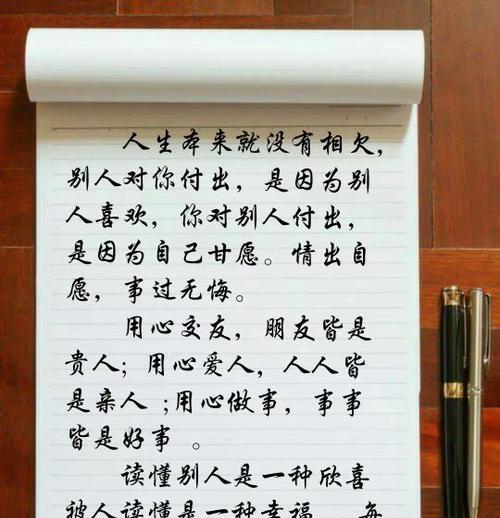 人生本来就没有相欠，
别人对你付出，是因为别
人喜欢，你对别人付出，
是因为自己甘愿。情出自
愿，事过无悔。
用心交友，朋友皆是
贵人；用心爱人，人人皆
是亲人 ；用心做事，事事
皆是好事 。
读懂别人是一种欣喜
被人读懂是一种幸福 每